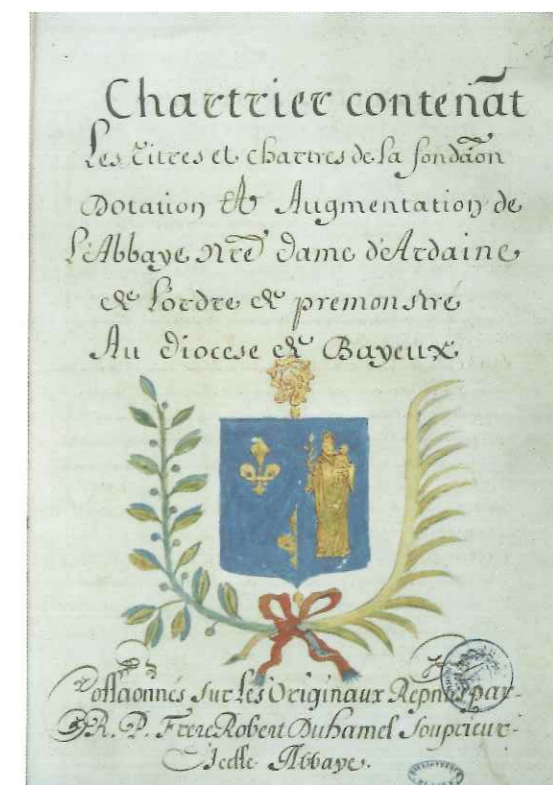 Chartrier conteñat
Les titres et chartres de la fondãon
Dotation Et Augmentation de
L'Abbaye Nrẽ dame d'Ardaine
de l'ordre de premonstré
Au diocese de Bayeux
Collaõnnés sur Les Originaux par
R. P. Frere Robert Duhamel souprieur
Icelle Abbaye.